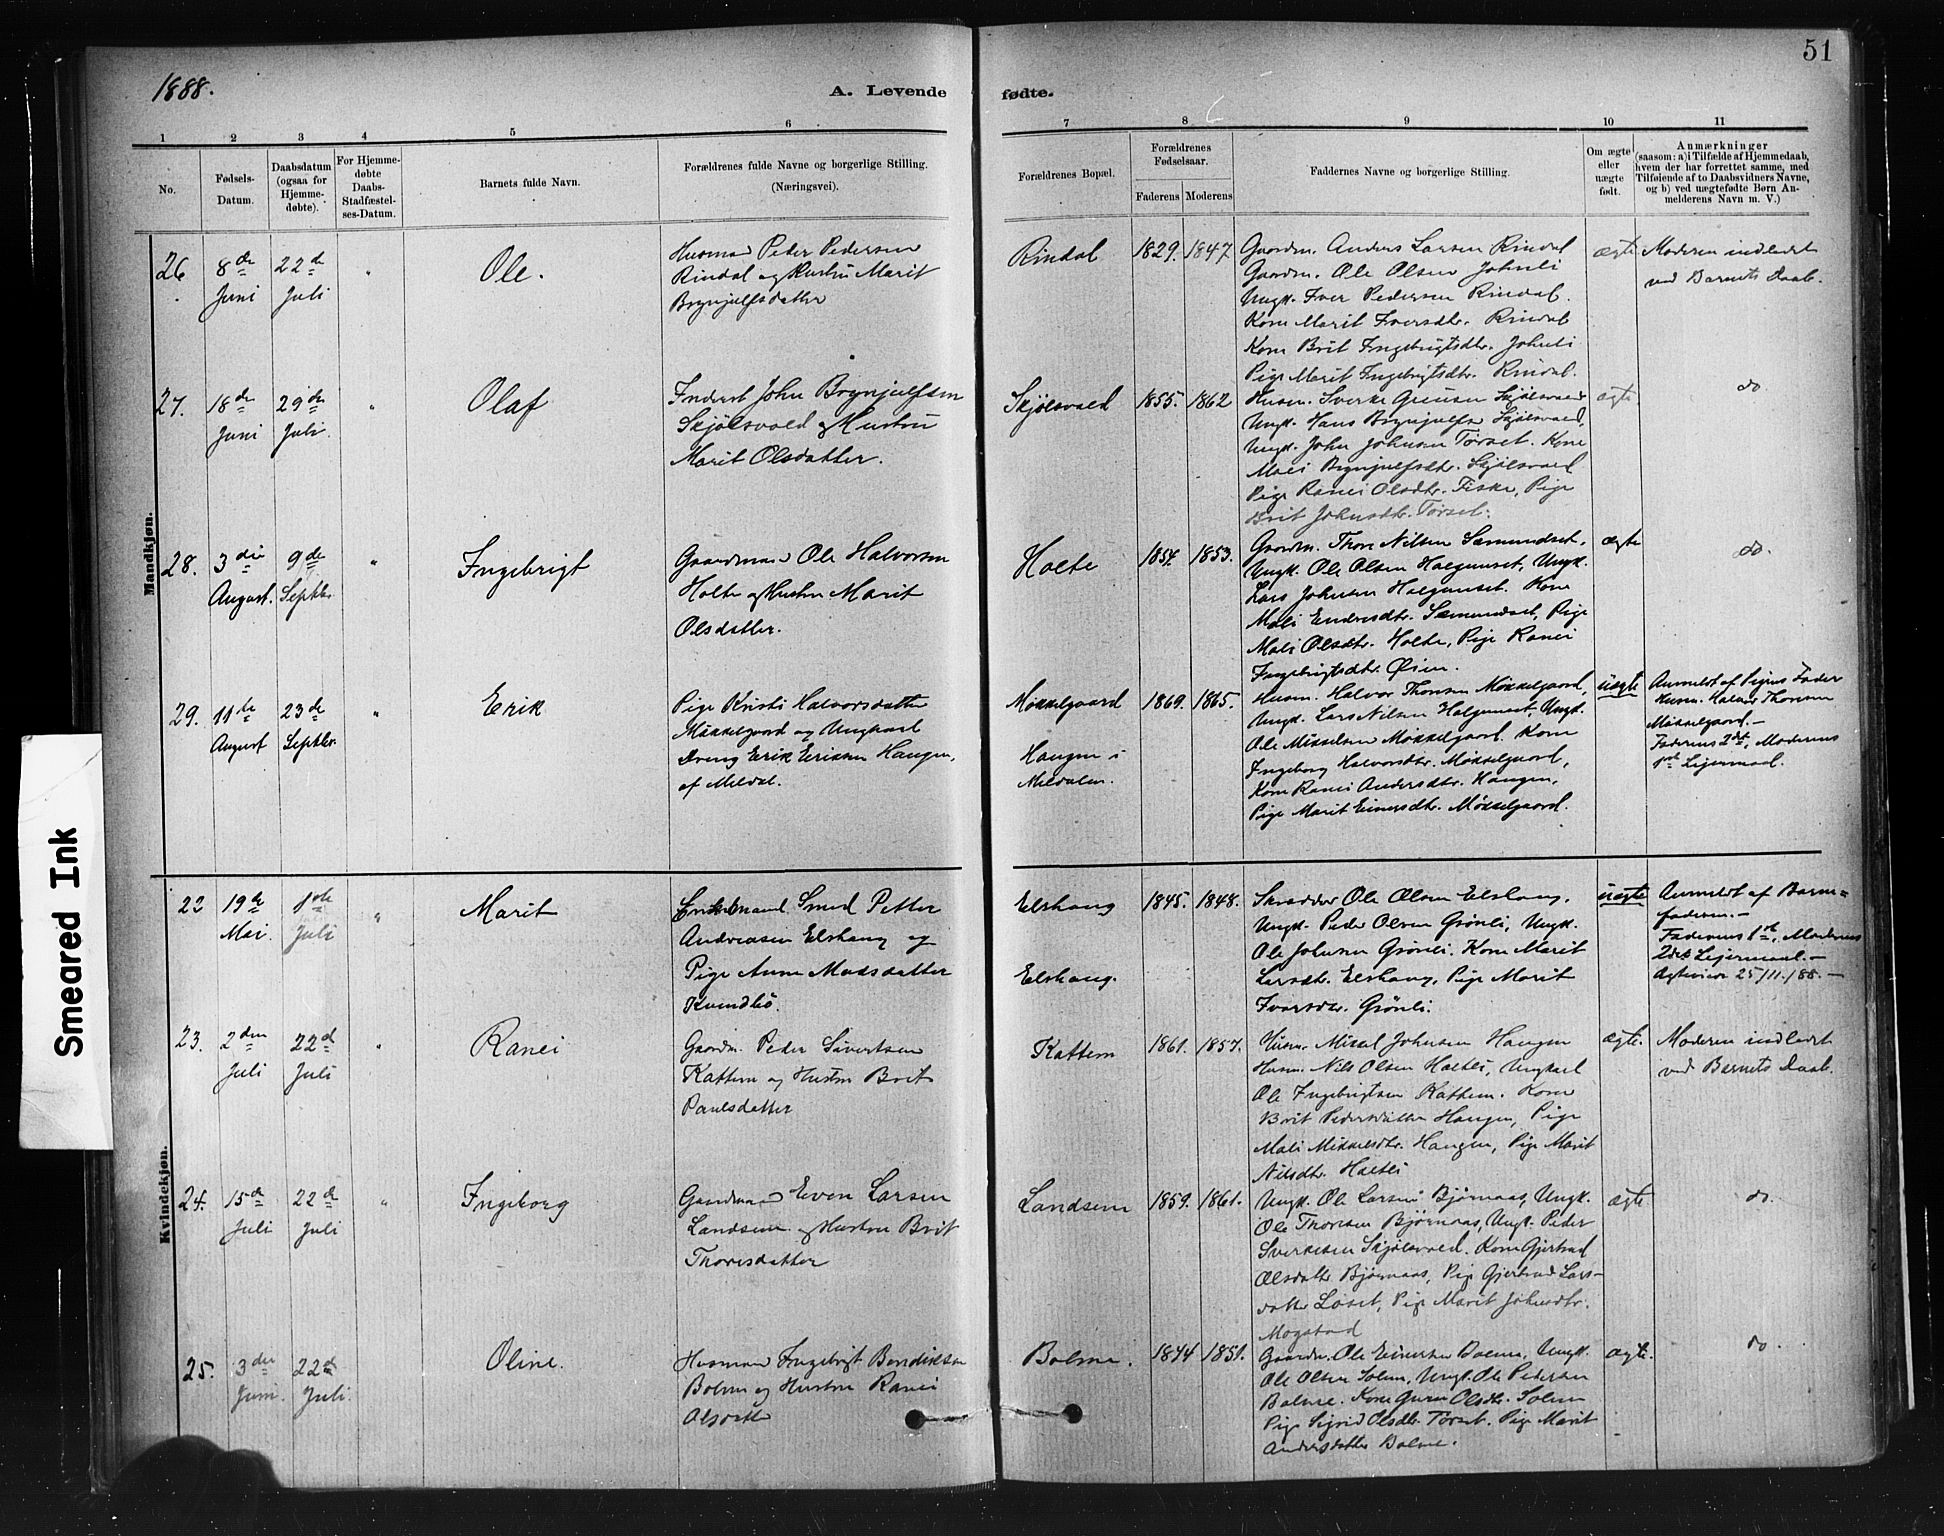 51
1888.
A. Levende fødte.
1 2 3 4 5 6 7 8 9 10 11
No.
Fødsels-
Datum.
Daabsdatum
(ogsaa for
Hjemme-
døbte).
For Hjemme-
døbte
Daabs-
Stadfæstel-
ses-Datum.
Barnets fulde Navn.
Forældrenes fulde Navne og borgerlige Stilling.
(Næringsvei).
Forældrenes Bopæl.
Forældrenes
Fødselsaar.
Faderens Moderens
Faddernes Navne og borgerlige Stilling.
Om ægte
eller
uægte
født.
Anmærkninger
(saasom: a) i Tilfælde af Hjemmedaab,
hvem der har forrettet samme, med
Tilføiende af to Daabsvidners Navne,
og b) ved uægtefødte Børn An-
melderens Navn m. V.)
Mandkjøn.
26
8de
Juni
22d
Juli
"
Ole.
Husmand Peder Pedersen
Rindal og Hustru Marit
Brynjulfsdatter
Rindal
1829. 1847
Gaardm. Anders Larsen Rindal
Gaardm. Ole Olsen Johnli
Ungk. Iver Pedersen Rindal.
Kone Marit Iversdtr. Rindal
Kone Brit Ingebrigtsdtr. Johnli
Pige Marit Ingebrigtsdtr. Rindal.
ægte
Moderen indledet
ved Barnets Daab.
27.
18de
Juni
29de
Juli.
"
Olaf
Inderst John Brynjulfsen
Skjølsvold og Hustru
Marit Olsdatter.
Skjølsvold
1855. 1862
Husm. Sverke Skjølsvold
Ungk. Hans Brynjulfs. Skjølsvold,
Ungk. John Johnsen Tørset. Kone
Mali Brynjulfsdtr. Skjølsvold
Pige Ranei Olsdtr. Fiske, Pige
Brit Johnsdtr. Tørset.
ægte
do.
28.
3die
August.
9de
Septbr.
"
Ingebrigt
Gaardmand Ole Halvorsen
Holte og Hustru Marit
Olsdatter.
Holte
1854. 1853.
Gaardm. Thore Nilsen Sæmundset,
Ungk. Ole Olsen Halgunset, Ungk.
Lars Johnsen Halgunset. Kone
Mali Endresdtr. Sæmundset, Pige
Mali Olsdtr. Holte, Pige Ranei
Ingebrigtsdtr. Øien.
ægte
do.
29.
11te
August
23de
Septbr.
"
Erik
Pige Kristi Halvorsdatter
Mikkelgaard og Ungkarl
Dreng Erik Eriksen Haugen,
af Meldal.
Møkkelgaard
Haugen i
Meldalen.
1869. 1865.
Husm. Halvor Thoresen Møkkelgaard,
Ungk. Lars Nilsen Halgunset, Ungk.
Ole Mikkelsen Møkkelgaard. Kone
Ingeborg Halvorsdtr. Møkkelgaard,
Kone Ranei Andersdtr. Haugen,
Pige Marit Einersdtr. Møkkelgaard.
uægte
Anmeldt af Pigens Fader
Husm. Halvor Thoresen
Møkkelgaard.—
Faderens 2det, Moderens
1ste Leiermaal.
Kvindekjøn.
22
19de
Mai.
1ste
Juli
"
Marit
Enkemand Smed Petter
Andreasen Elshaug og
Pige Anne Madsdatter
Kvindbø.
Elshaug
Elshaug.
1845. 1848.
Skrædder Ole Olsen Elshaug,
Ungk. Peder Olsen Grønli, Ungk.
Ole Johnsen Grønli. Kone Marit
Larsdtr. Elshaug, Pige Marit
Ivarsdtr. Grønli.
uægte
Anmeldt af Barne-
faderen.—
Faderens 1ste, Moderens
2det Leiermaal.—
Ægteviede 25/11/88.—
23.
2den
Juli
22d
Juli
"
Ranei
Gaardm. Peder Sivertsen
Kattem og Hustru Brit
Paulsdatter
Kattem
1861. 1857.
Husm. Mikal Johnsen Haugen
Husm. Nils Olsen Holtli, Ungkarl
Ole Ingebrigtsen Kattem. Kone
Brit Pedersdatter Haugen, Pige
Mali Mikkelsdtr. Haugen, Pige Marit
Nilsdtr. Holtli
ægte.
Moderen indledet
ved Barnets Daab.
24.
15de
Juli
22de
Juli
"
Ingeborg
Gaardmand Even Larsen
Landsem og Hustru Brit
Thoresdatter
Landsem
1859. 1861.
Ungk. Ole Larsen Bjørnaas, Ungk.
Ole Thoresen Bjørnaas, Ungk. Peder
Sverkesen Skjølsvold. Kone Gjertrud
Olsdatter Bjørnaas, Pige Gjertrud Lars-
datter Løset, Pige Marit Johnsdtr.
Mogstad
ægte
do.
25.
3die
Juni.
22de
Juli.
Oline.
Husmand Ingebrigt Bendiksen
Bolme og Hustru Ranei
Olsdatter
Bolme.
1844 1851.
Gaardm. Ole Einersen Bolme, Ungk.
Ole Olsen Solem, Ungk. Ole Pedersen
Bolme. Kone Guru Olsdtr. Solem
Pige Sigrid Olsdtr. Tørset. Pige Marit
Andersdatter Bolme.
ægte.
do.
Smeared Ink